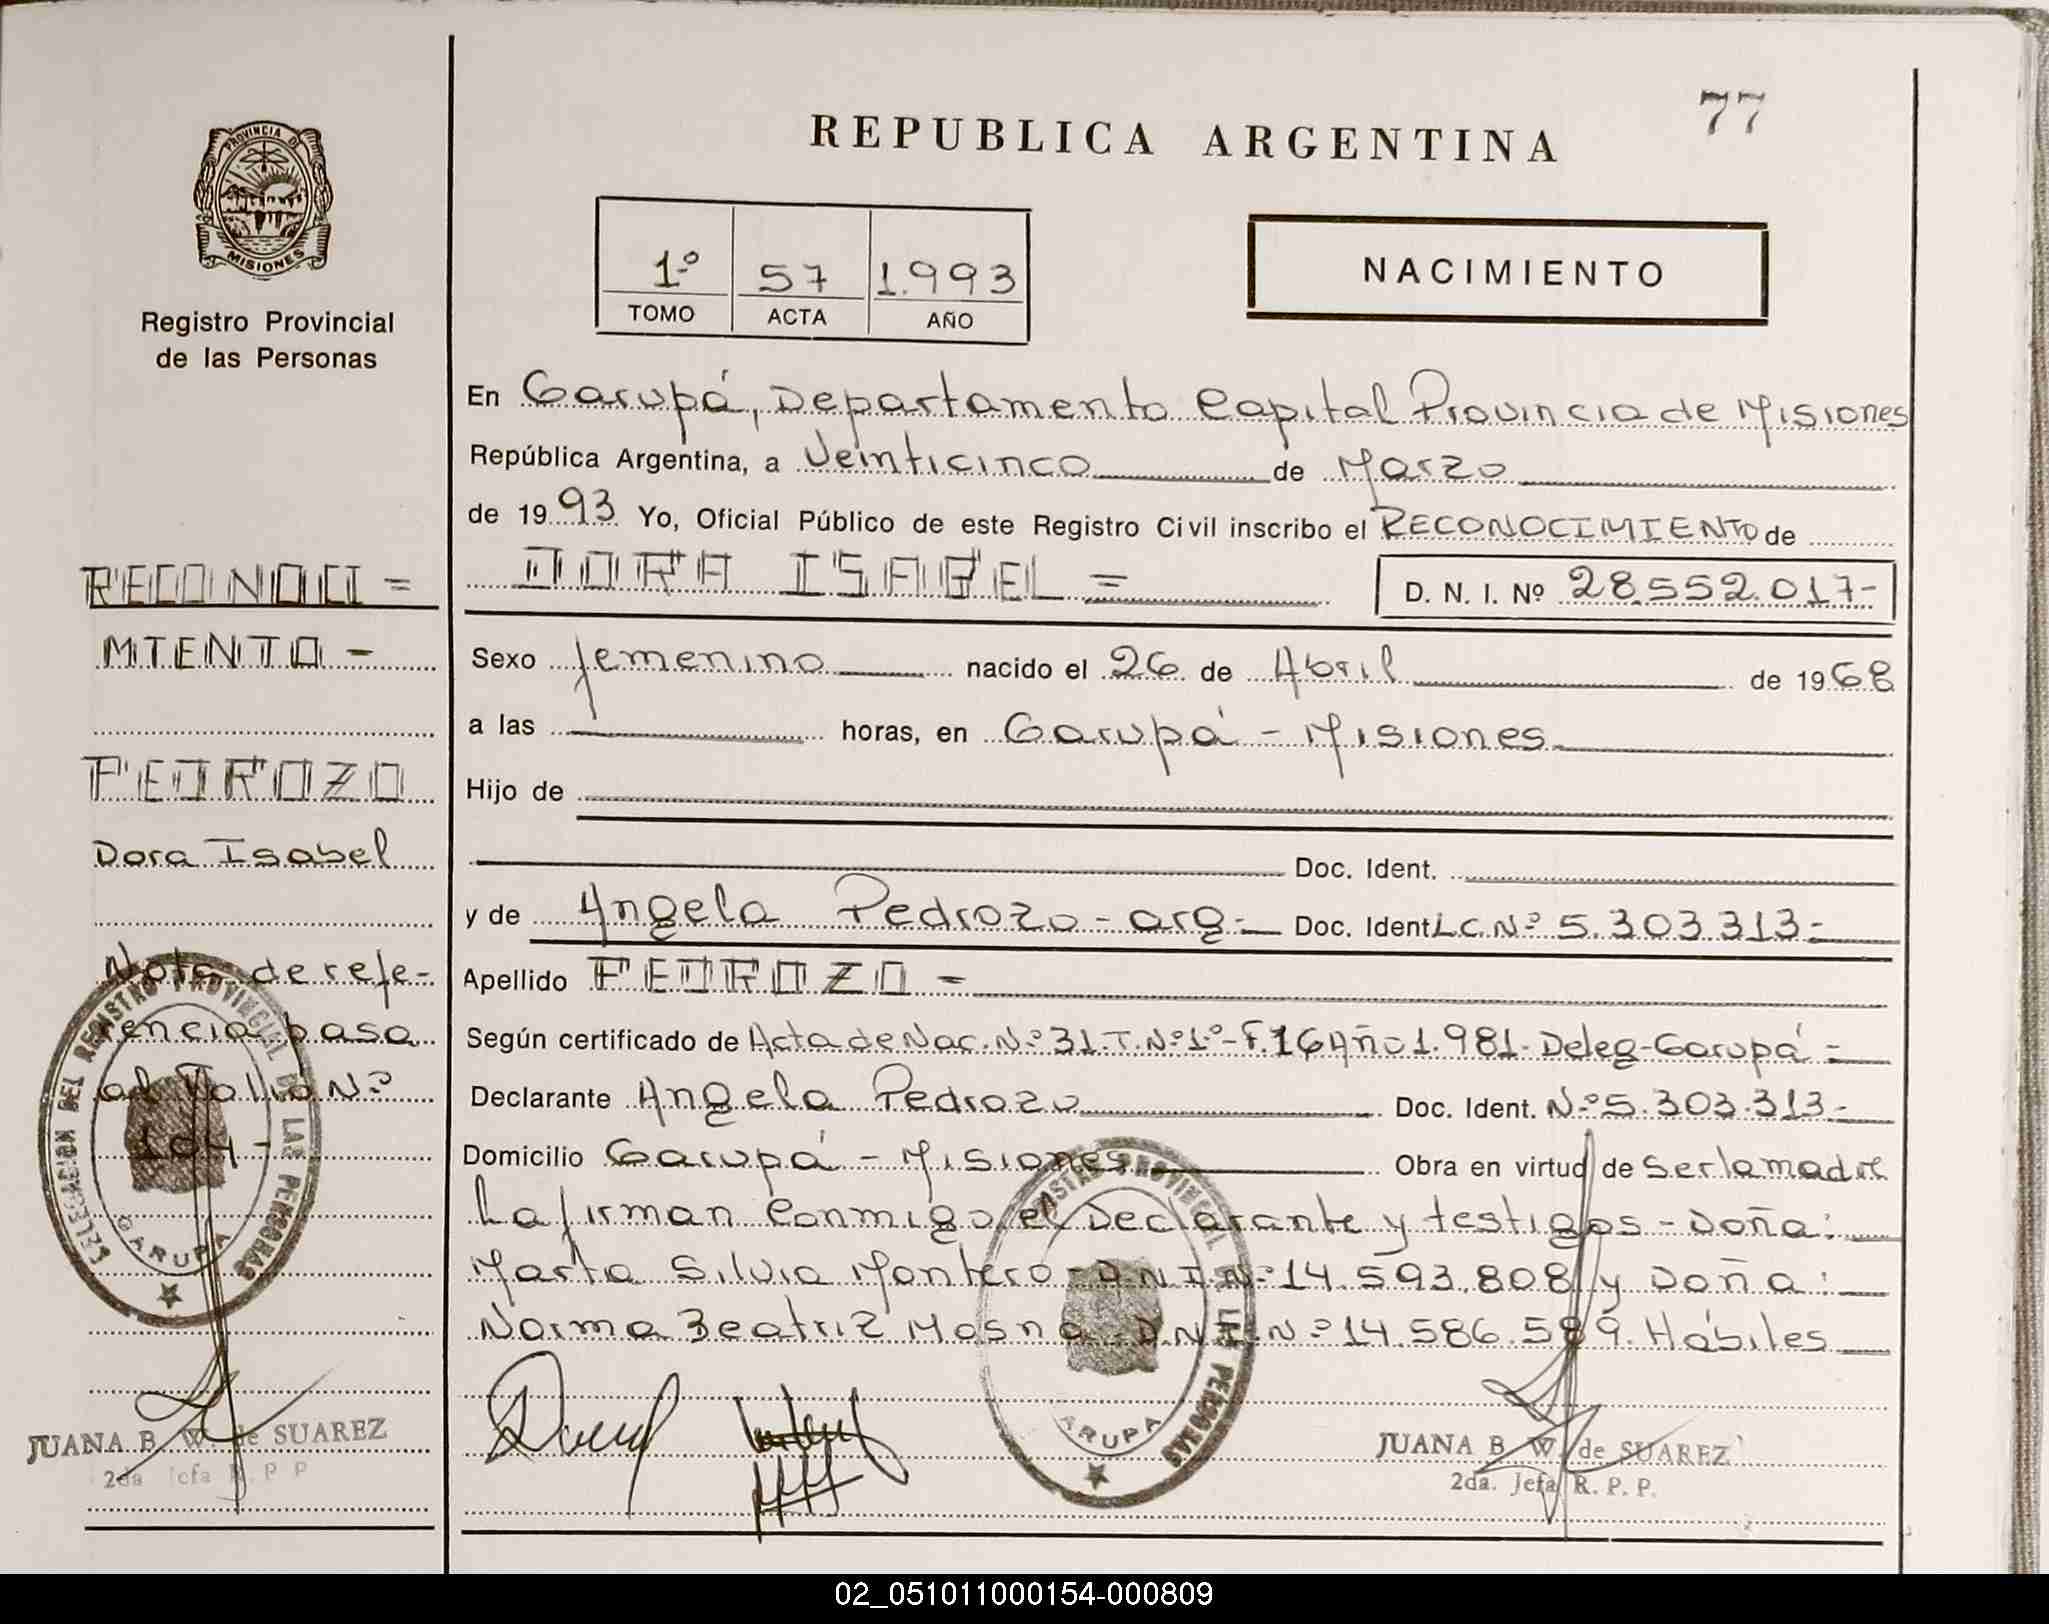 77
REPUBLICA ARGENTINA
PROVINCIA DE
MISIONES
Registro Provincial
de las Personas
1º 57 1.993
TOMO ACTA AÑO
NACIMIENTO
En Garupá, Departamento Capital Provincia de Misiones
República Argentina, a Veinticinco de Marzo
de 1993 Yo, Oficial Público de este Registro Civil inscribo el RECONOCIMIENTO de
DORA ISABEL = D. N. I. Nº 28.552.017-
Sexo femenino nacido el 26 de Abril de 1968
a las horas, en Garupá - Misiones
Hijo de
Doc. Ident.
y de Angela Pedrozo - arg- Doc. Ident L.C. Nº 5.303.313-
Apellido PEDROZO -
Según certificado de Acta de Nac. Nº 31. T. Nº 1º - F. 16 Año 1.981. Deleg- Garupá -
Declarante Angela Pedrozo Doc. Ident. Nº 5.303.313-
Domicilio Garupá - Misiones Obra en virtud de ser la madre
La firman conmigo el Declarante y testigos - Doña:
Marta Silvia Montero - D.N.I. Nº 14.593.808 y Doña:
Norma Beatriz Mosna D.N.I. Nº 14.586.589. Hábiles
JUANA B. W. de SUAREZ
2da. Jefa R. P. P.
RECONOCI =
MIENTO -
PEDROZO
Dora Isabel
Nota de refe-
rencia pasa
al Folio Nº
104-
DELEGACION DEL REGISTRO PROVINCIAL DE LAS PERSONAS
GARUPA
JUANA B. W. de SUAREZ
2da Jefa R. P. P
02_051011000154-000809